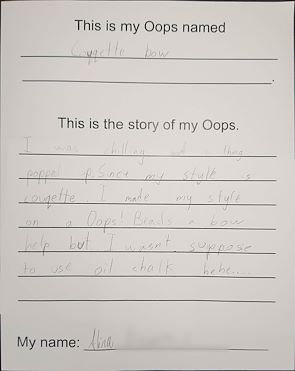 This is my Oops named
Coqqette bow
.
This is the story of my Oops.
I was chilling and a thing
popped up. Since my style is
couqette. I made my style
on a Oops! Beads a bow
help but I wasnt suppose
to use oil chalk hehe....
My name: Alina